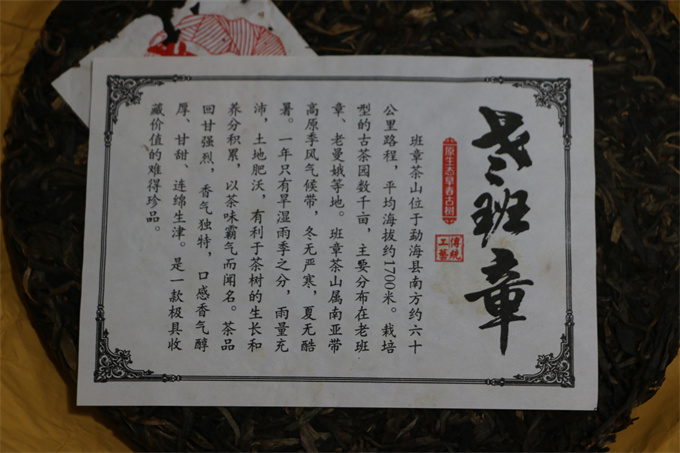 老班章
原生态早春古树
傳統
工藝
班章茶山位于勐海县南方约六十
公里路程，平均海拔约1700米。栽培
型的古茶园数千亩，主要分布在老班
章、老曼娥等地。班章茶山属南亚带
高原季风气候带，冬无严寒，夏无酷
暑。一年只有旱湿雨季之分，雨量充
沛，土地肥沃，有利于茶树的生长和
养分积累，以茶味霸气而闻名。茶品
回甘强烈，香气独特，口感香气醇
厚、甘甜、连绵生津。是一款极具收
藏价值的难得珍品。